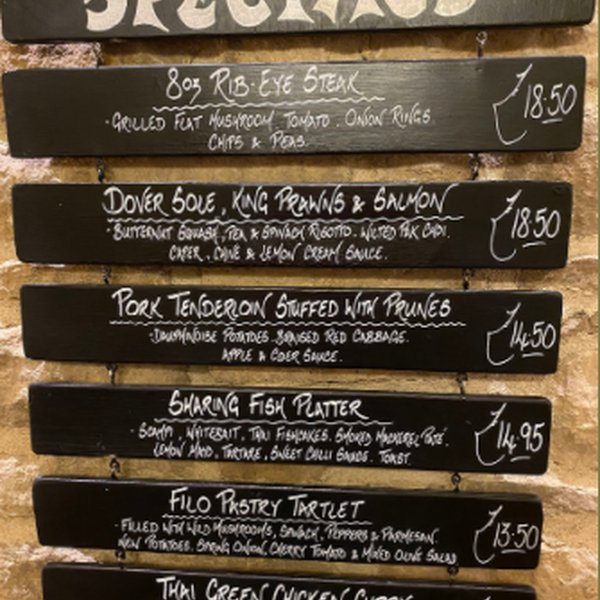 SPECIALS
8oz RIB-EYE STEAK
· GRILLED FLAT MUSHROOM, TOMATO. ONION RINGS.
CHIPS & PEAS.
£18.50
DOVER SOLE, KING PRAWNS & SALMON
· BUTTERNUT SQUASH, PEA & SPINACH RISOTTO. WILTED PAK CHOI.
CAPER, CHIVE & LEMON CREAM SAUCE.
£18.50
PORK TENDERLOIN STUFFED WITH PRUNES
· DAUPHINOISE POTATOES. BRAISED RED CABBAGE.
APPLE & CIDER SAUCE.
£14.50
SHARING FISH PLATTER
· SCAMPI, WHITEBAIT, THAI FISHCAKES. SMOKED MACKEREL PATÉ.
LEMON MAYO, TARTARE, SWEET CHILLI SAUCE. TOAST.
£14.95
FILO PASTRY TARTLET
· FILLED WITH WILD MUSHROOMS, SPINACH, PEPPERS & PARMESAN.
NEW POTATOES. SPRING ONION, CHERRY TOMATO & MIXED OLIVE SALAD
£13.50
THAI GREEN CHICKEN CURRY